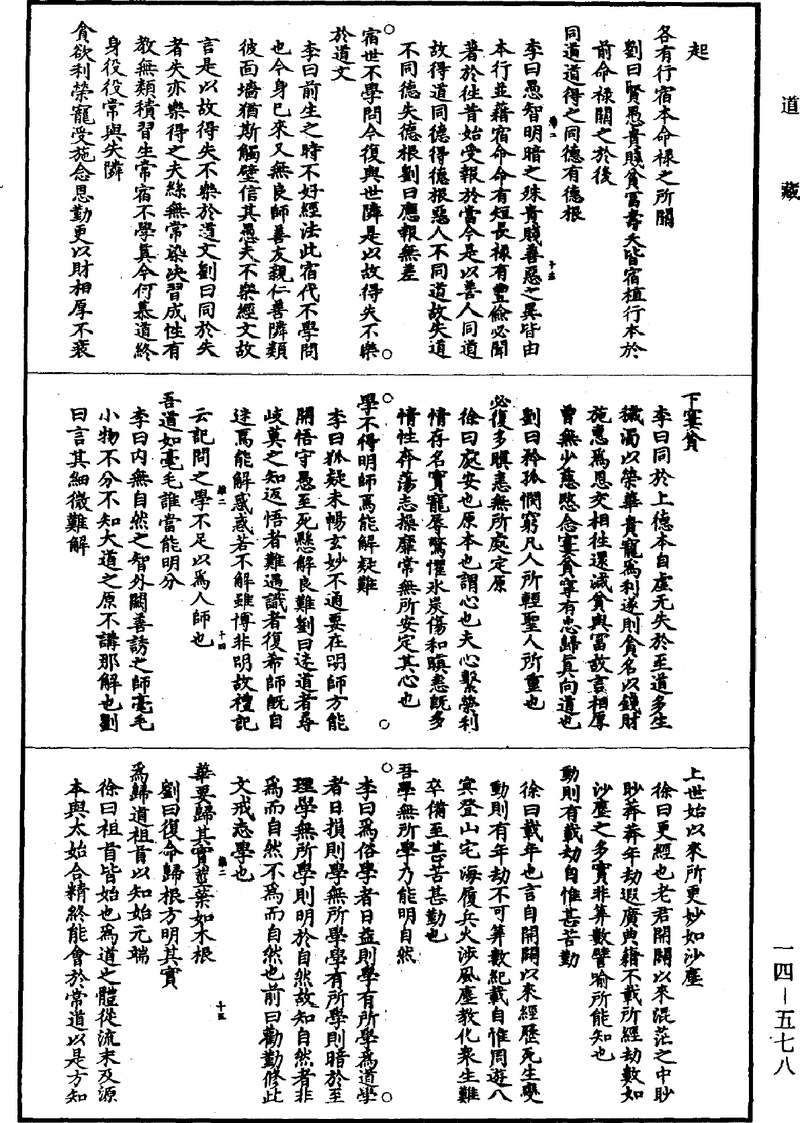 道藏
起
各有行宿本命祿之所關
劉曰賢愚貴賤貧富壽夭皆宿植行本於
前命祿關之於後
同道道得之同德有德根
李曰愚智明暗之殊貴賤善惡之異皆由
本行並藉宿命命有短長祿有豐儉必聞
著於往昔始受報於當今是以善人同道
故得道同德得德根惡人不同道故失道
不同德失德根劉曰應報無差
宿世不學問今復與世隣是以故得失不樂
於道文
李曰前生之時不好經法此宿代不學問
也今身已來又無良師善友親仁善隣類
彼面墻猶斯觸壁信其愚夫不樂經文故
言是以故得失不樂於道文劉曰同於失
者失亦樂得之夫絲無常染決習成性有
教無類積習生常宿不學真今何慕道終
身役役常與失隣
貪欲利榮寵受施念恩勤更以財相厚不衰
下窶貧
李曰同於上德本自虛无失於至道多生
穢濁以榮華貴寵為利遂則貪名以錢財
施惠為恩交相往還減貧與富故言相厚
曾無少慈愍念窶貧寧有忠歸真向道也
劉曰矜孤憫窮凡人所輕聖人所重也
必復多瞋恚無所處定原
徐曰處安也原本也謂心也夫心繫榮利
情存名寶寵辱驚懼氷炭傷和瞋恚既多
情性奔蕩志操靡常無所安定其心也
學不得明師焉能解疑難
李曰狐疑未暢玄妙不通要在明師方能
開悟守愚至死懸解良難劉曰迷道者尋
岐莫之知返悟者難遇識者復希師既自
迷焉能解惑惑若不解雖博非明故禮記
云記問之學不足以為人師也
吾道如毫毛誰當能明分
李曰內無自然之智外闕善誘之師毫毛
小物不分不知大道之原不講那解也劉
曰言其細微難解
上世始以來所更妙如沙塵
徐曰更經也老君開闢以來混茫之中眇
眇莽莽年劫遐廣典籍不載所經劫數如
沙塵之多實非算數譬喻所能知也
動則有載劫自惟甚苦勤
徐曰載年也言自開闢以來經歷死生變
動則有年劫不可算數紀載自惟周遊八
寘登山宅海履兵火涉風塵教化衆生難
卒備至甚苦甚勤也
吾學無所學乃能明自然
李曰為俗學者日益則學有所學為道學
者日損則學無所學學有所學則暗於至
理學無所學則明於自然故知自然者非
為而自然不為而自然也前曰勸勤修此
文戒怠學也
華更歸其實莖葉如本根
劉曰復命歸根方明其實
為歸道祖首以知始元端
徐曰祖首皆始也為道之體從流末及源
本與太始合精終能會於常道以是方知
一四—五七八